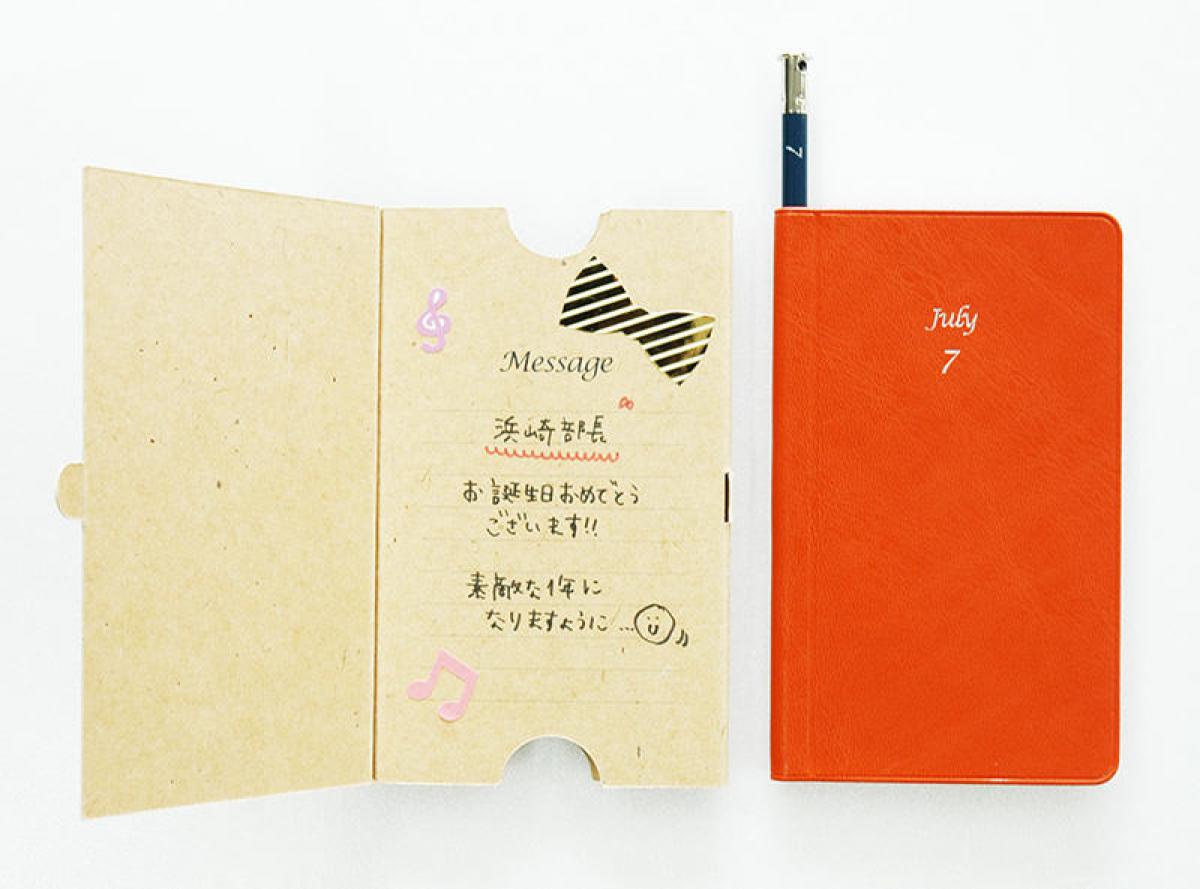 Message
浜崎部長
お誕生日おめでとう
ございます!!
素敵な1年に
なりますように...
7
July
7